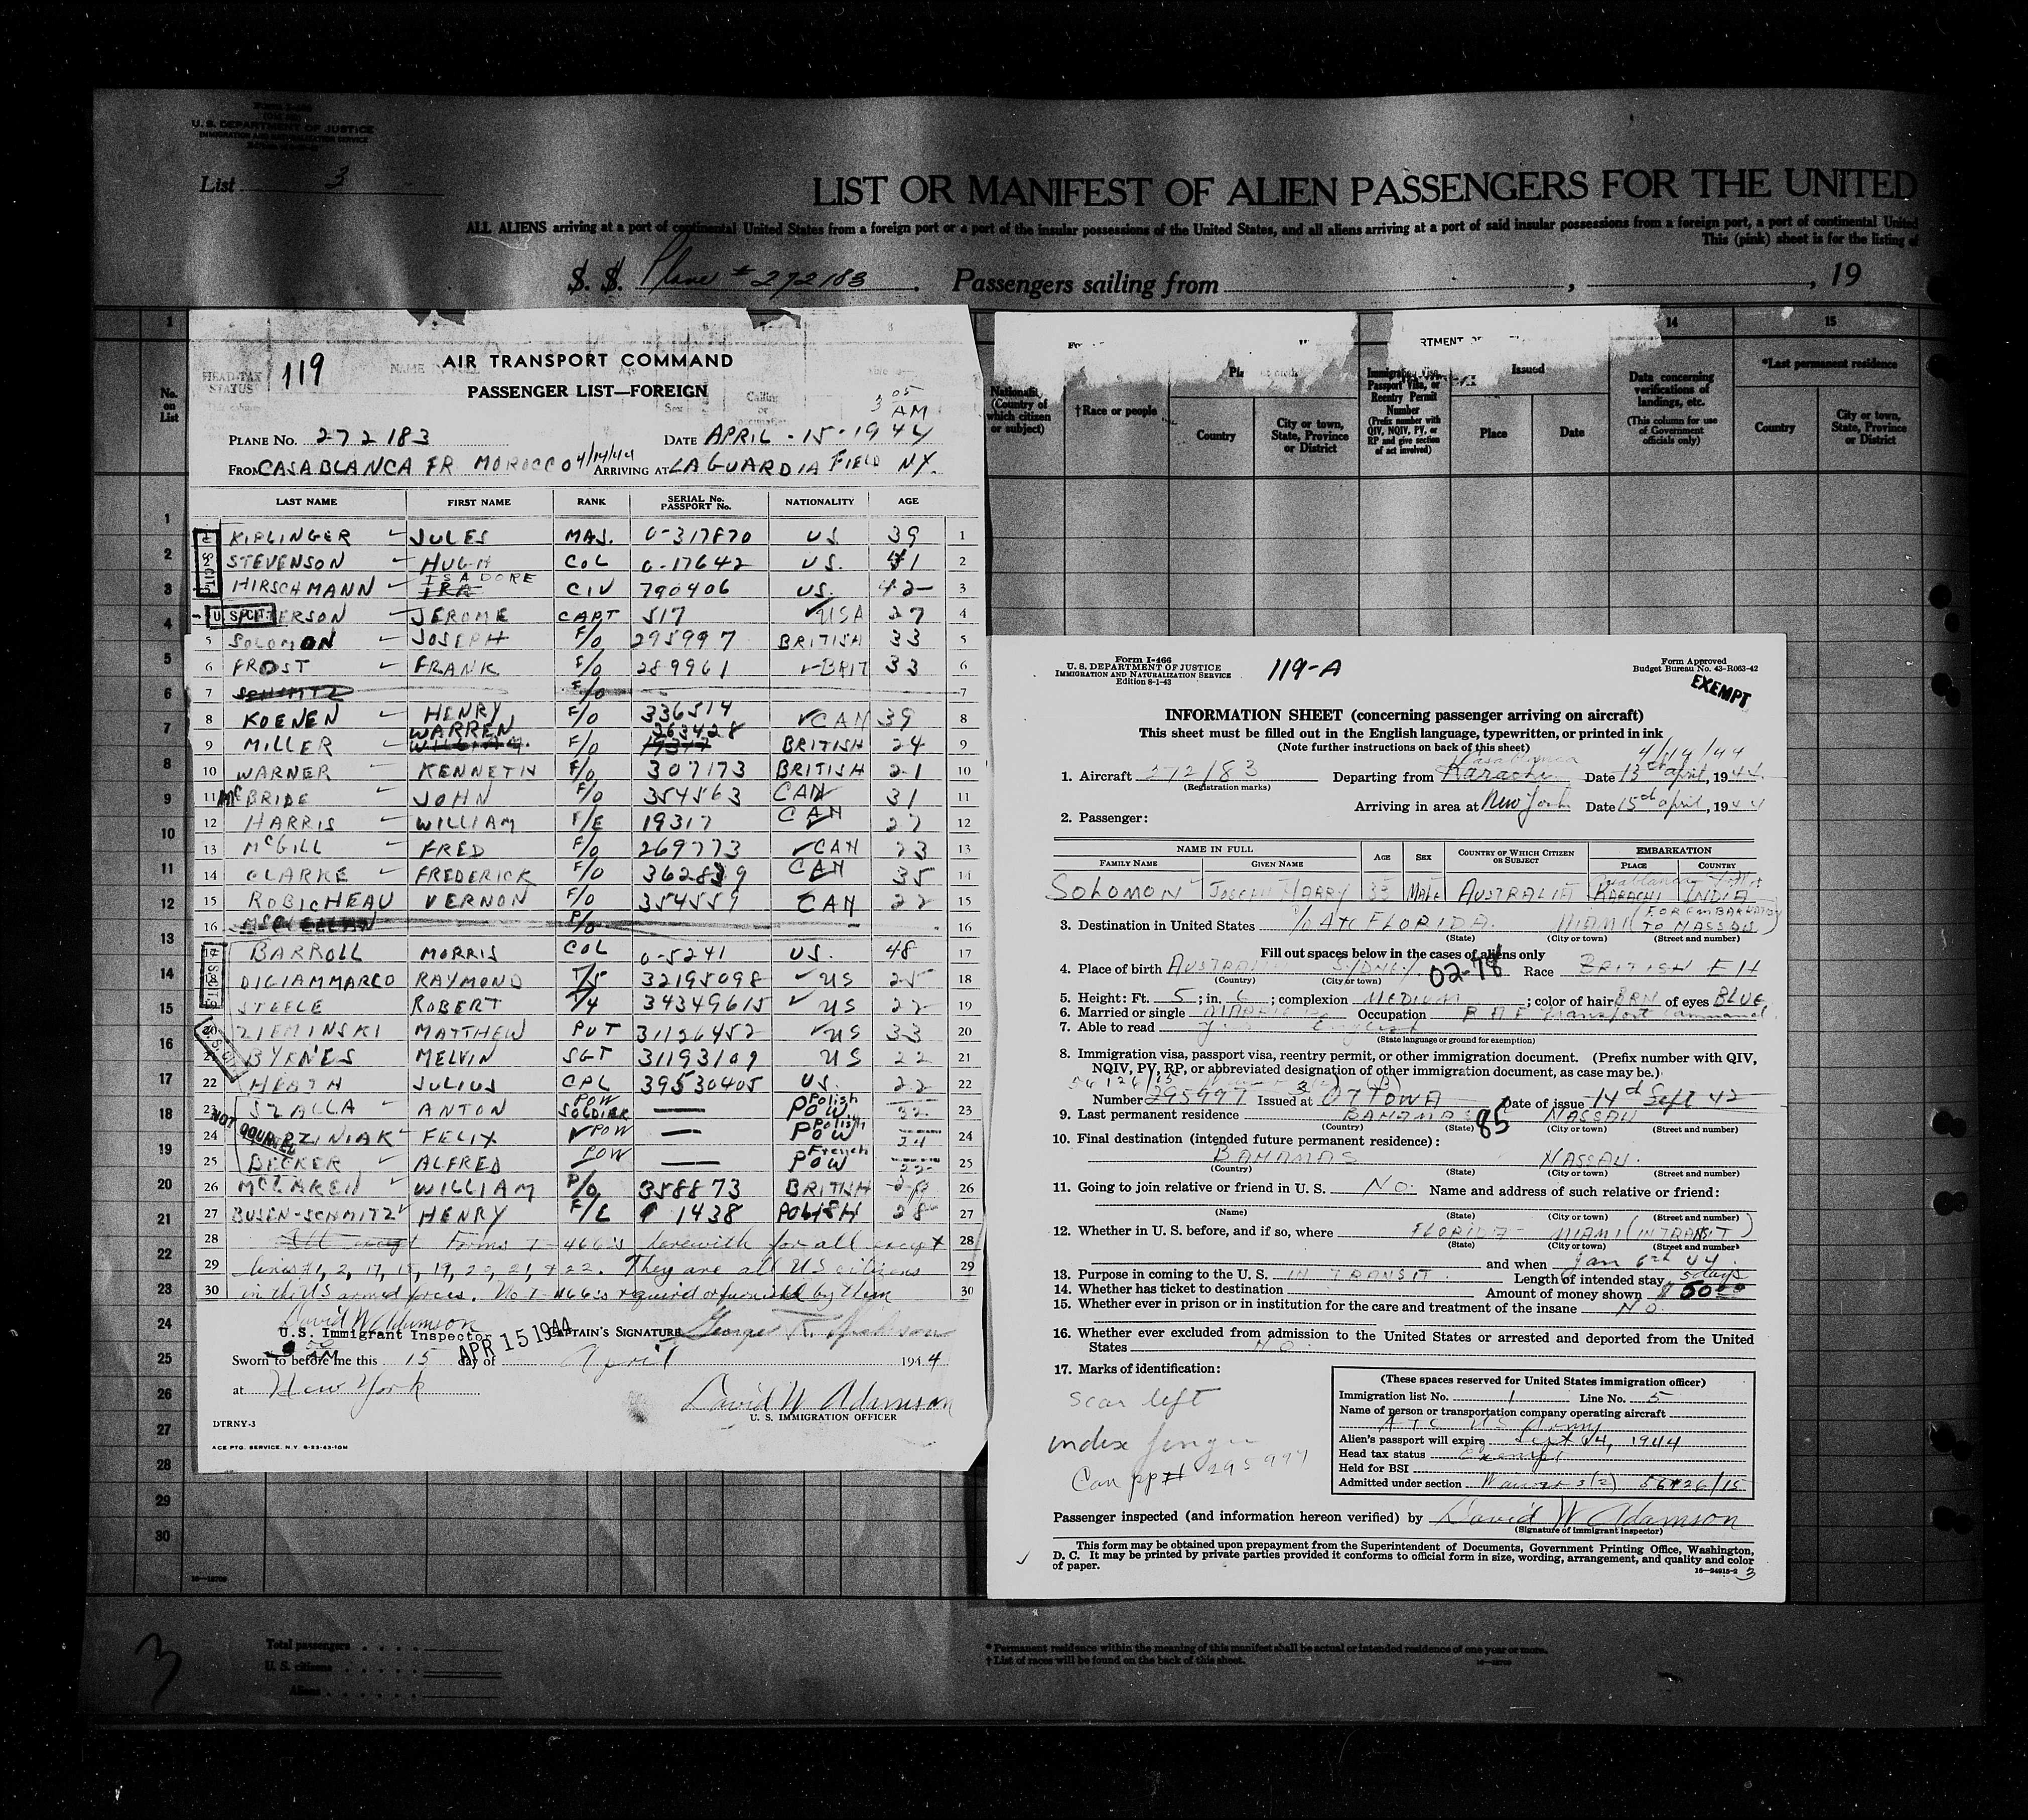 Form I-466
U. S. DEPARTMENT OF JUSTICE
IMMIGRATION AND NATURALIZATION SERVICE
List 3
LIST OR MANIFEST OF ALIEN PASSENGERS FOR THE UNITED
ALL ALIENS arriving at a port of continental United States from a foreign port or a port of the insular possessions of the United States, and all aliens arriving at a port of said insular possessions from a foreign port, a port of continental United
This (pink) sheet is for the listing of
S. S. Plane # 272183 . Passengers sailing from , , 19
119
AIR TRANSPORT COMMAND
PASSENGER LIST—FOREIGN
HEAD-TAX STATUS
3 05 AM
PLANE No. 272183 DATE APRIL-15-1944
FROM CASABLANCA FR MOROCCO 4/14/44 ARRIVING AT LA GUARDIA FIELD NY.
LAST NAME FIRST NAME RANK SERIAL No. PASSPORT No. NATIONALITY AGE
KIPLINGER JULES MAJ. 0-317870 US 39 1
STEVENSON HUGH COL 0-17642 US. 41 2
HIRSCHMANN ISADORE IRA CIV 790406 US. 42 3
U.S. CIT. ERSON JEROME CAPT 517 USA 27 4
5 SOLOMON JOSEPH F/O 295997 BRITISH 33 5
6 FROST FRANK F/O 289961 BRIT 33 6
7 SCHMITZ F/O 7
8 KOENEN HENRY F/O 336514 CAN 39 8
9 MILLER WARREN WILLIAM. F/O 363428 19317 BRITISH 24 9
10 WARNER KENNETH F/O 307173 BRITISH 21 10
11 McBRIDE JOHN F/O 354563 CAN 31 11
12 HARRIS WILLIAM F/E 19317 CAN 27 12
13 McGILL FRED F/O 269773 CAN 23 13
14 CLARKE FREDERICK F/O 362839 CAN 35 14
15 ROBICHEAU VERNON F/O 354559 CAN 22 15
16 P/O 16
17 BARROLL MORRIS COL 0-5241 US. 48 17
18 DIGIAMMARCO RAYMOND T/5 32195098 US 25 18
STEELE ROBERT T/4 34349615 US 22 19
20 ZIEMINSKI MATTHEW PVT 31126452 US 33 20
21 BYRNES MELVIN SGT 31193109 US 22 21
22 HEATH JULIUS CPL 39530405 US. 22 22
23 SZALLA ANTON POW SOLDIER — Polish POW 32 23
NOT REQUIRED
24 ZINIAK FELIX POW — Polish POW 24
25 BECKER ALFRED POW — French POW 25
26 McLAREN WILLIAM P/O 358873 BRITISH 26
27 BUSEN-SCHMITZ HENRY F/L P 1438 POLISH 28 27
28 All except Forms I-466's herewith for all except 28
29 lines #1, 2, 17, 18, 19, 20, 21, & 22. They are all US citizens 29
30 in the US armed forces. No I-466's required or furnished by them 30
David W Adamson
U.S. Immigrant Inspector CAPTAIN'S SIGNATURE George R.
APR 15 1944
Sworn to before me this 15 day of April 1944
at New York David W Adamson
U. S. IMMIGRATION OFFICER
DTRNY-3
ACE PTG. SERVICE. N.Y 6-23-43-10M
No. on List
Nationality (Country of which citizen or subject)
†Race or people
Country
City or town, State, Province or District
Immigration Visa, Passport Visa, or Reentry Permit Number
(Prefix number with QIV, NQIV, PV, or RP and give section of act involved)
Issued
Place
Date
14
Data concerning verifications of landings, etc.
(This column for use of Government officials only)
15
*Last permanent residence
Country
City or town, State, Province or District
Form I-466
U. S. DEPARTMENT OF JUSTICE
IMMIGRATION AND NATURALIZATION SERVICE
Edition 8-1-43
119-A
Form Approved
Budget Bureau No. 43-R063-42
EXEMPT
INFORMATION SHEET (concerning passenger arriving on aircraft)
This sheet must be filled out in the English language, typewritten, or printed in ink
(Note further instructions on back of this sheet)
Casablanca 4/14/44
1. Aircraft 272183 Departing from Karachi Date 13th April, 1944
(Registration marks)
Arriving in area at New York Date 15th April, 1944
2. Passenger:
NAME IN FULL AGE SEX COUNTRY OF WHICH CITIZEN OR SUBJECT EMBARKATION
FAMILY NAME GIVEN NAME PLACE COUNTRY
SOLOMON JOSEPH HARRY 33 MALE AUSTRALIA Casablanca KARACHI INDIA
3. Destination in United States % ATC FLORIDA. MIAMI (FOR EMBARKATION TO NASSAU)
(State) (City or town) (Street and number)
Fill out spaces below in the cases of aliens only
4. Place of birth AUSTRALIA SYDNEY 02-78 Race BRITISH EH
(Country) (City or town)
5. Height: Ft. 5; in. 6; complexion MEDIUM; color of hair BRN of eyes BLUE
6. Married or single MARRIED Occupation RAF Transport Command
7. Able to read y. English
(State language or ground for exemption)
8. Immigration visa, passport visa, reentry permit, or other immigration document. (Prefix number with QIV,
NQIV, PV, RP, or abbreviated designation of other immigration document, as case may be.)
Number 295997 Issued at OTTOWA Date of issue 14th Sept 42
9. Last permanent residence BAHAMAS 85 NASSAU
(Country) (State) (City or town) (Street and number)
10. Final destination (intended future permanent residence):
BAHAMAS NASSAU.
(Country) (State) (City or town) (Street and number)
11. Going to join relative or friend in U. S. NO. Name and address of such relative or friend:
(Name) (State) (City or town) (Street and number)
12. Whether in U. S. before, and if so, where FLORIDA MIAMI (IN TRANSIT)
(State) (City or town) (Street and number)
and when Jan 6th 44
13. Purpose in coming to the U. S. IN TRANSIT. Length of intended stay 5 days
14. Whether has ticket to destination Amount of money shown $ 50.00
15. Whether ever in prison or in institution for the care and treatment of the insane NO
16. Whether ever excluded from admission to the United States or arrested and deported from the United
States NO.
17. Marks of identification:
scar left
index finger
Can pp# 295997
(These spaces reserved for United States immigration officer)
Immigration list No. 1 Line No. 5
Name of person or transportation company operating aircraft
ATC US Army
Alien's passport will expire Sept 14, 1944
Head tax status Exempt
Held for BSI
Admitted under section Waiver 3(2) 56126/15
Passenger inspected (and information hereon verified) by David W Adamson
(Signature of immigrant inspector)
This form may be obtained upon prepayment from the Superintendent of Documents, Government Printing Office, Washington,
D. C. It may be printed by private parties provided it conforms to official form in size, wording, arrangement, and quality and color
of paper.
16—34915-2 3
3
Total passengers
U. S. citizens
Aliens
* Permanent residence within the meaning of this manifest shall be actual or intended residence of one year or more.
† List of races will be found on the back of this sheet.